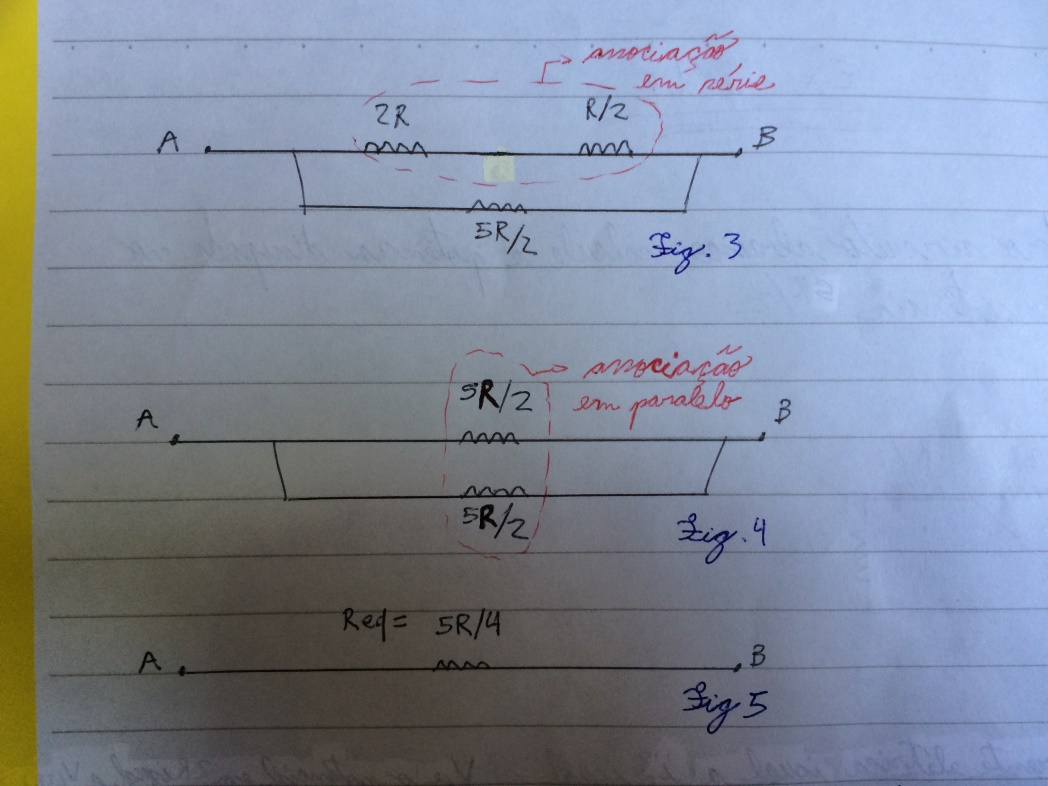 associação
em série
2R
R/2
A
B
5R/2
Fig. 3
associação
em paralelo
5R/2
A
B
5R/2
Fig. 4
Req = 5R/4
A
B
Fig 5